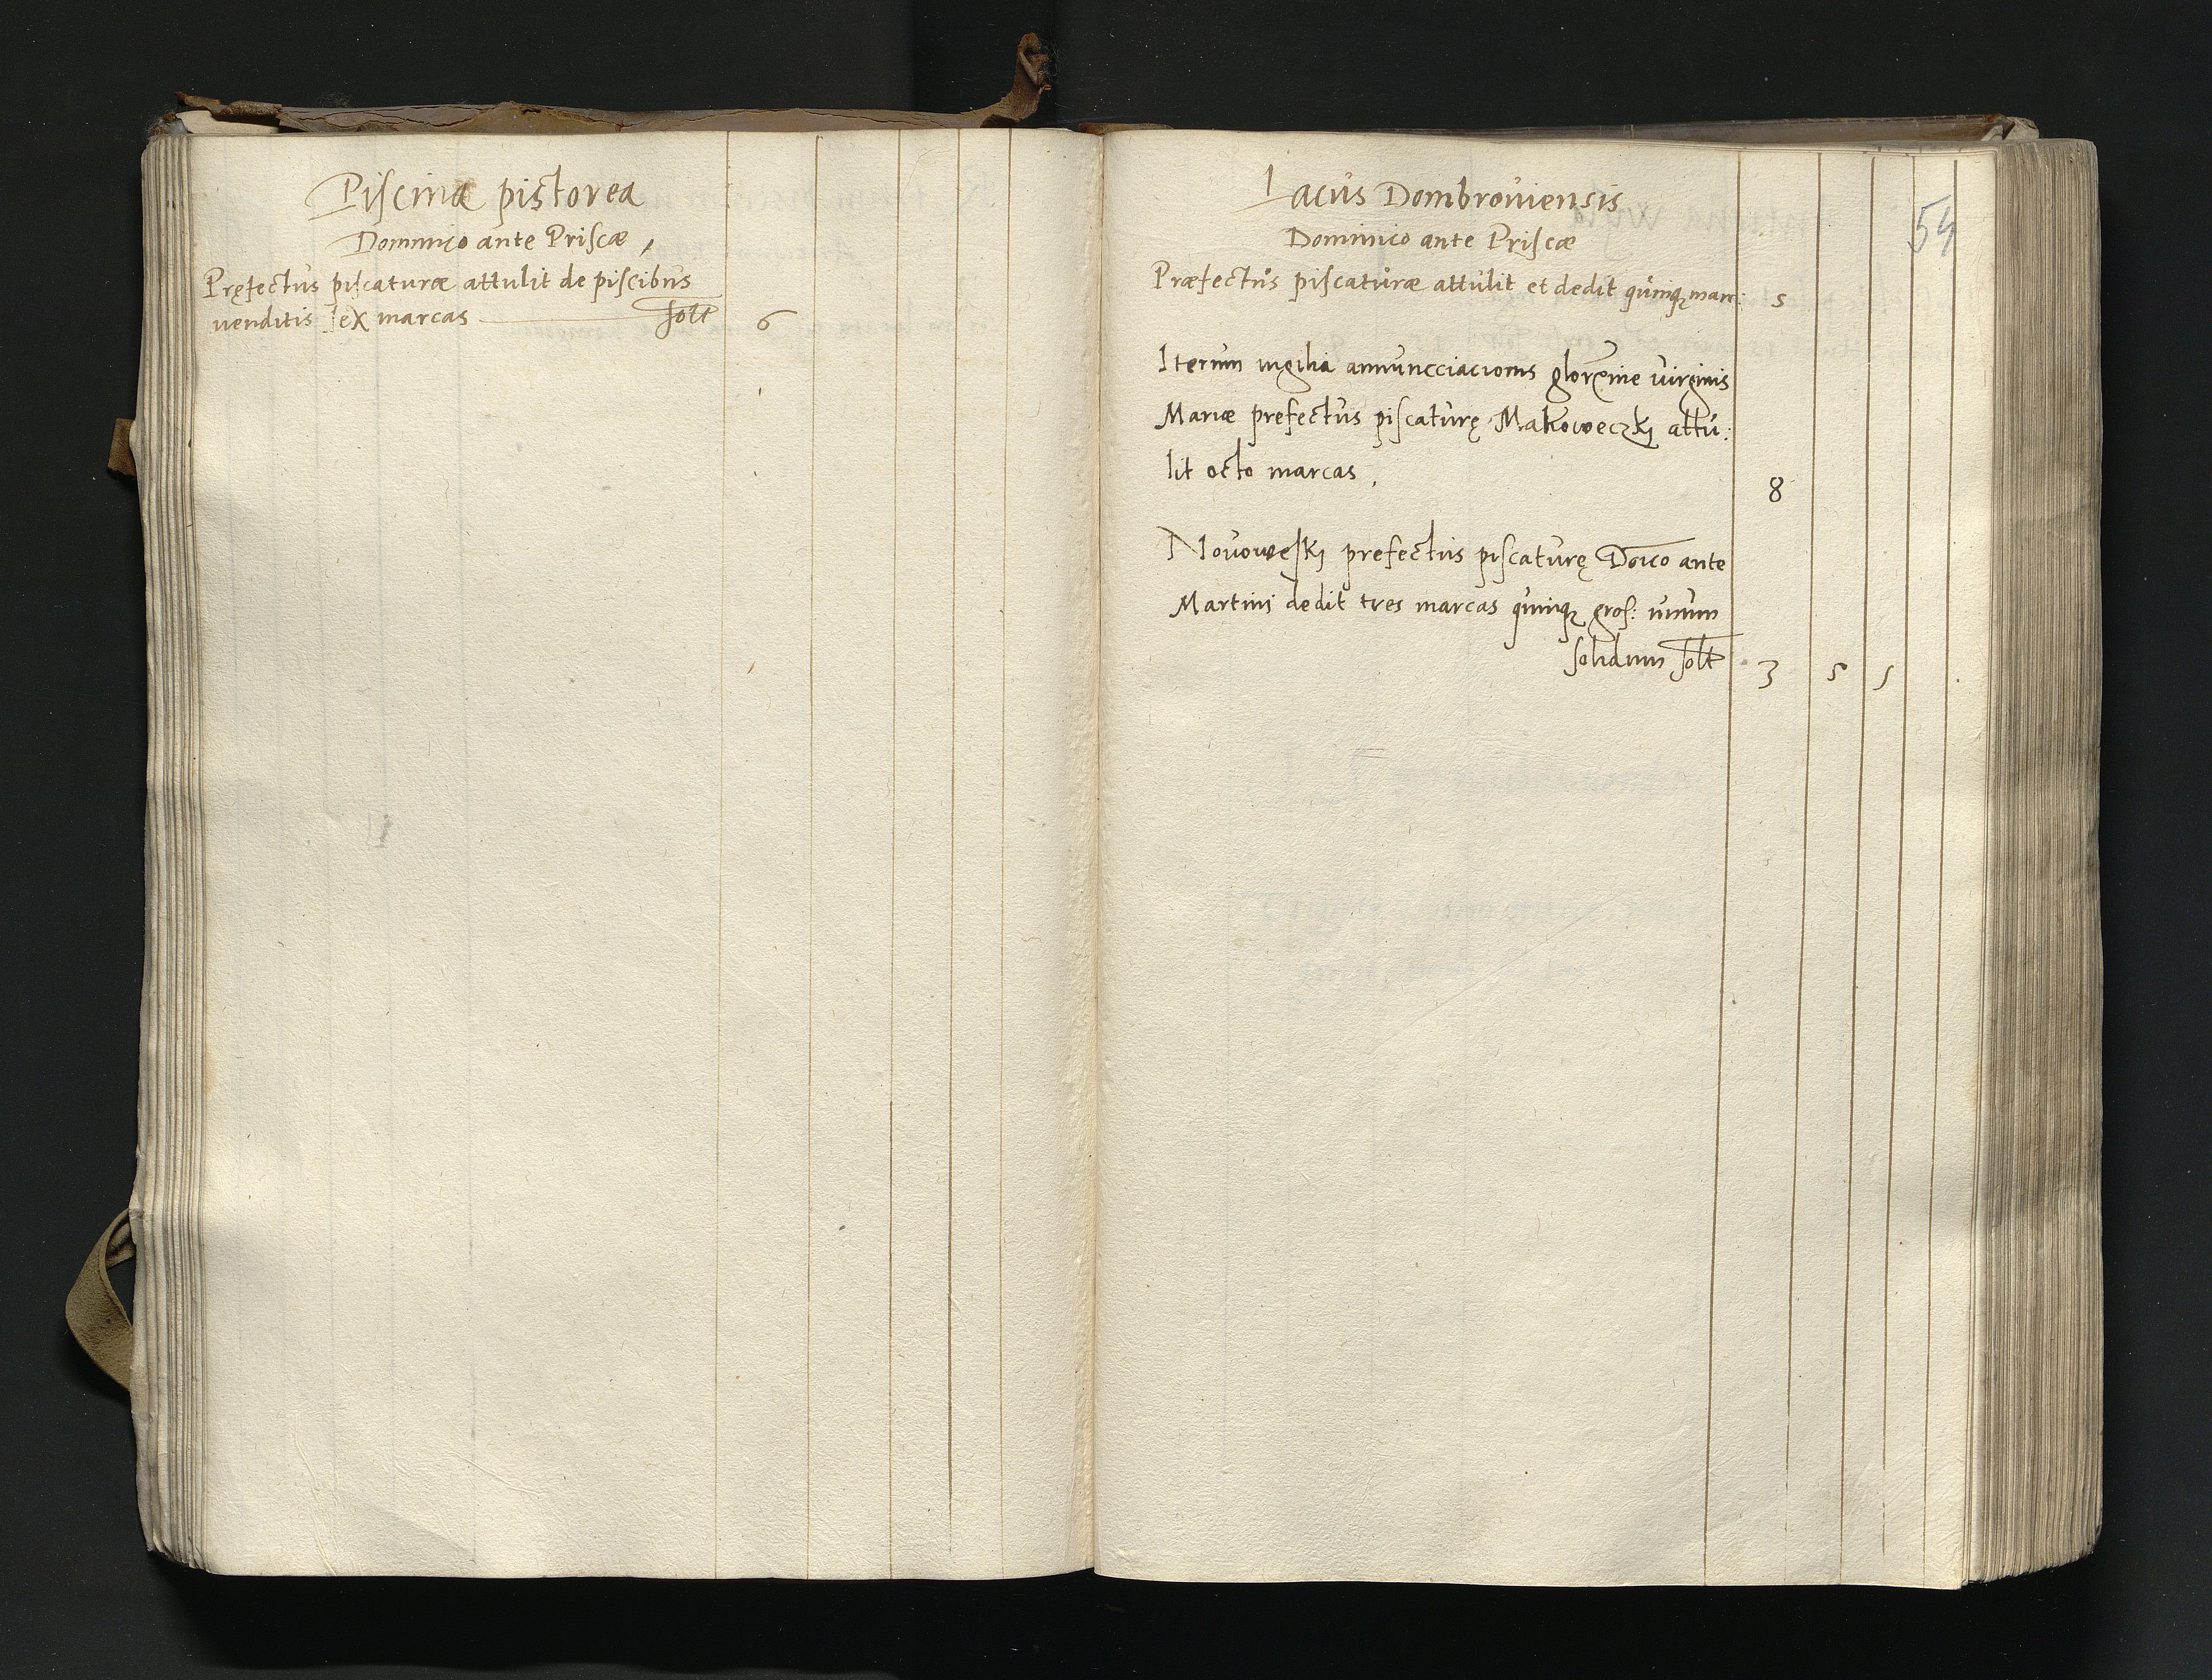 Piscina pistorea
Dominico ante Priscæ,
Pręfectus piscaturæ attulit de piscibus
venditis sex marcas ——— solt 6
54
Lacus Dombroviensis
Dominico ante Priscæ
Præfectus piscaturæ attulit et dedit quinqz mar: 5
Iterum vigilia annuncciacionis glor virginis
Mariæ prefectus piscaturę Makoweczkj attu:
lit octo marcas, 8
Novoweskj prefectus piscaturę Doico ante
Martinj dedit tres marcas quinqz gros: unum
solidum solt 3 5 1